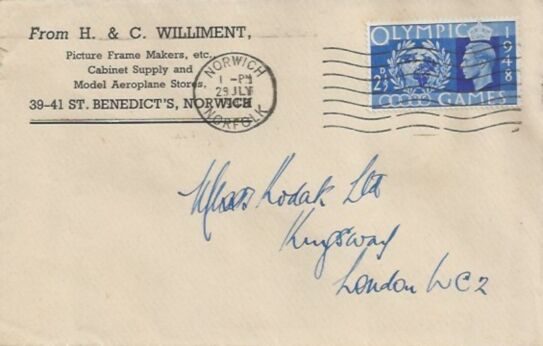 From H. & C. WILLIMENT,
Picture Frame Makers, etc.,
Cabinet Supply and
Model Aeroplane Stores,
39-41 ST. BENEDICT'S, NORWICH
NORWICH
1 - PM
29 JLY
1948
NORFOLK
OLYMPIC
1948
2½D
GAMES
Messrs Kodak Ltd
Kingsway
London WC2